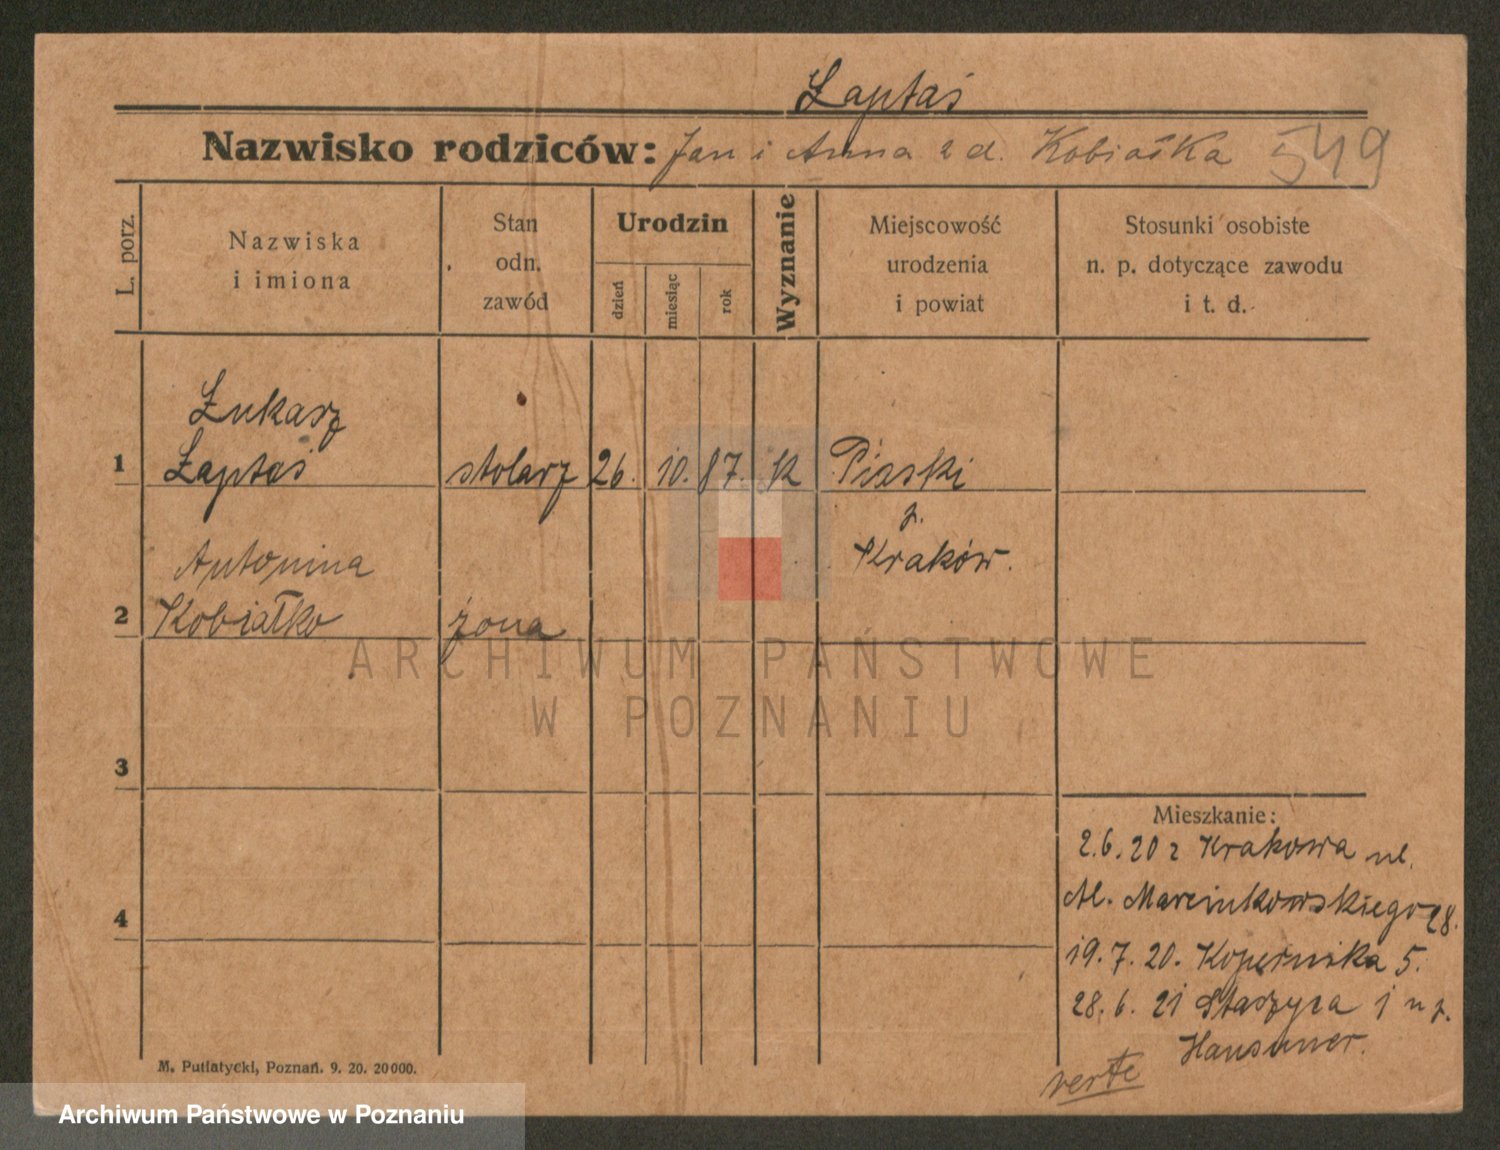 Łaptaś
Nazwisko rodziców: Jan i Anna z d. Kobiałka 549
L. porz.
Nazwiska
i imiona
Stan
odn.
zawód
Urodzin
dzień
miesiąc
rok
Wyznanie
Miejscowość
urodzenia
i powiat
Stosunki osobiste
n. p. dotyczące zawodu
i t. d.
Łukasz
1 Łaptaś stolarz 26. 10. 87. k Piaski
p.
Kraków.
Antonina
2 Kobiałko żona
ARCHIWUM PAŃSTWOWE
W POZNANIU
3
Mieszkanie:
2.6.20 z Krakowa ul.
Al. Marcinkowskiego 28.
4
19.7.20. Kopernika 5.
28.6.21 Staszyca 1 u p.
verte
M. Putiatycki, Poznań. 9. 20. 20000.
Archiwum Państwowe w Poznaniu